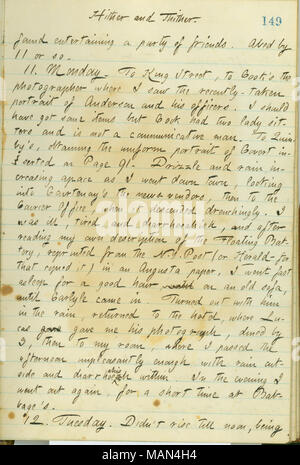 Hither and Thither.
149
found entertaining a party of friends. Abed by
11 or so.
11. Monday. To King Street, to Cook's the
photographer where I saw the recently-taken
portrait of Anderson and his officers. I should
have got some items but Cook had two lady sit-
ters and is not a communicative man. To Quin-
by's, obtaining the uniform portrait of Covert in-
serted on Page 91. Drizzle and rain in-
creasing apace as I went down town, looking
into Courtenay's the news venders, then to the
Courier Office, when it descended drenchingly. I
was ill, tired and diarrhoeaish, and after
reading my own description of the Floating Bat-
tery, reprinted from the N.Y. Post (or Herald- for
that copied it) in an Augusta paper, I went fast
asleep for a good hour on an old sofa,
until Carlyle came in. Turned out with him
in the rain, returned to the hotel, where Lu-
cas gave me his photograph, dined by
3, then to my room, where I passed the
afternoon unpleasantly enough, with rain out-
side and within. In the evening I
went out again, for a short time at Bab-
bage's.
12. Tuesday. Didn't rise till noon, being
alamy
Image ID: MAN4H4
www.alamy.com